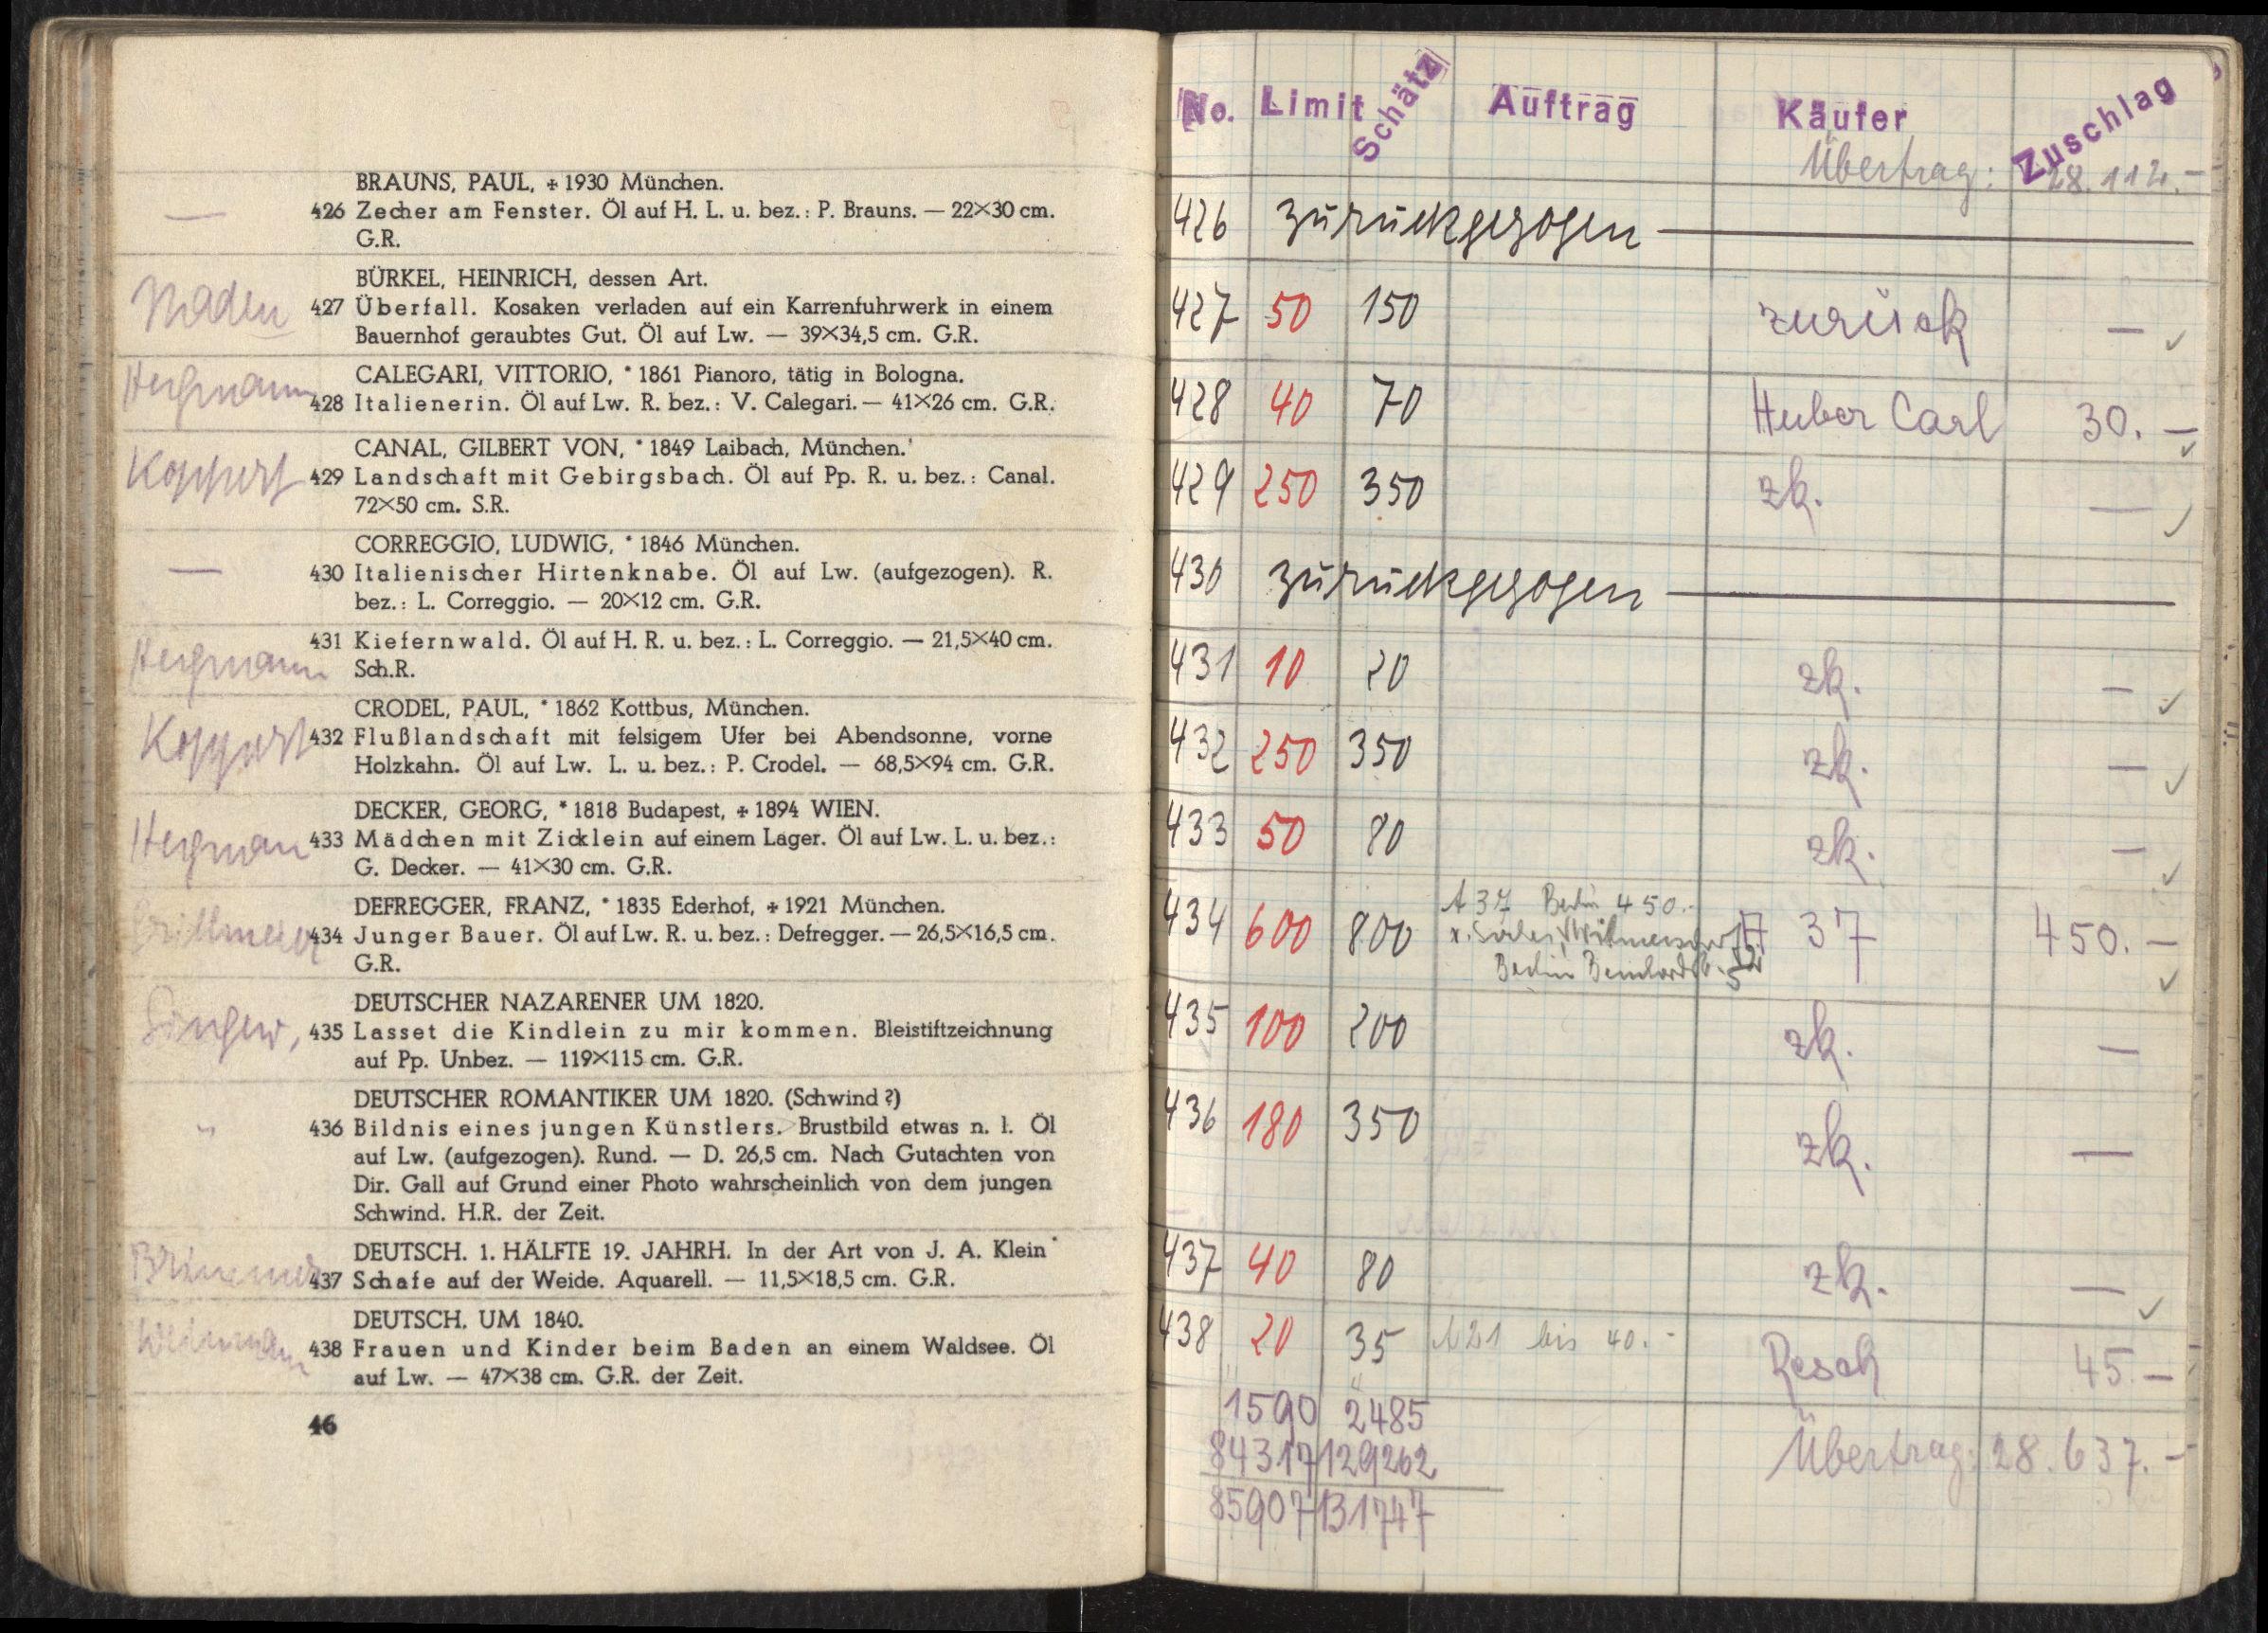 BRAUNS, PAUL, ✠ 1930 München.
— 426 Zecher am Fenster. Öl auf H. L. u. bez.: P. Brauns. — 22×30 cm.
G.R.
BÜRKEL, HEINRICH, dessen Art.
427 Überfall. Kosaken verladen auf ein Karrenfuhrwerk in einem
Bauernhof geraubtes Gut. Öl auf Lw. — 39×34,5 cm. G.R.
CALEGARI, VITTORIO, * 1861 Pianoro, tätig in Bologna.
428 Italienerin. Öl auf Lw. R. bez.: V. Calegari. — 41×26 cm. G.R.
CANAL, GILBERT VON, * 1849 Laibach, München.
Koppert 429 Landschaft mit Gebirgsbach. Öl auf Pp. R. u. bez.: Canal.
72×50 cm. S.R.
CORREGGIO, LUDWIG, * 1846 München.
— 430 Italienischer Hirtenknabe. Öl auf Lw. (aufgezogen). R.
bez.: L. Correggio. — 20×12 cm. G.R.
431 Kiefernwald. Öl auf H. R. u. bez.: L. Correggio. — 21,5×40 cm.
Sch.R.
CRODEL, PAUL, * 1862 Kottbus, München.
Koppert 432 Flußlandschaft mit felsigem Ufer bei Abendsonne, vorne
Holzkahn. Öl auf Lw. L. u. bez.: P. Crodel. — 68,5×94 cm. G.R.
DECKER, GEORG, * 1818 Budapest, ✠ 1894 WIEN.
433 Mädchen mit Zicklein auf einem Lager. Öl auf Lw. L. u. bez.:
G. Decker. — 41×30 cm. G.R.
DEFREGGER, FRANZ, * 1835 Ederhof, ✠ 1921 München.
434 Junger Bauer. Öl auf Lw. R. u. bez.: Defregger. — 26,5×16,5 cm.
G.R.
DEUTSCHER NAZARENER UM 1820.
435 Lasset die Kindlein zu mir kommen. Bleistiftzeichnung
auf Pp. Unbez. — 119×115 cm. G.R.
DEUTSCHER ROMANTIKER UM 1820. (Schwind ?)
" 436 Bildnis eines jungen Künstlers. Brustbild etwas n. l. Öl
auf Lw. (aufgezogen). Rund. — D. 26,5 cm. Nach Gutachten von
Dir. Gall auf Grund einer Photo wahrscheinlich von dem jungen
Schwind. H.R. der Zeit.
DEUTSCH. 1. HÄLFTE 19. JAHRH. In der Art von J. A. Klein
437 Schafe auf der Weide. Aquarell. — 11,5×18,5 cm. G.R.
DEUTSCH, UM 1840.
438 Frauen und Kinder beim Baden an einem Waldsee. Öl
auf Lw. — 47×38 cm. G.R. der Zeit.
46
No. Limit Schätz Auftrag Käufer Zuschlag
Übertrag: 28.112.-
426 zurückgezogen —
427 50 150 zurück — ✓
428 40 70 Huber Carl 30. — ✓
429 250 350 zk. — ✓
430 zurückgezogen —
431 10 20 zk. — ✓
432 250 350 zk. — ✓
433 50 80 zk. — ✓
A 37 Berlin 450.-
434 600 800 A 37 450. — ✓
Berlin
435 100 200 zk. —
436 180 350 zk. —
437 40 80 zk. — ✓
438 20 35 A 21 bis 40.- Resch 45. —
1590 2485
84317 129262
Übertrag: 28.637.-
85907 131747